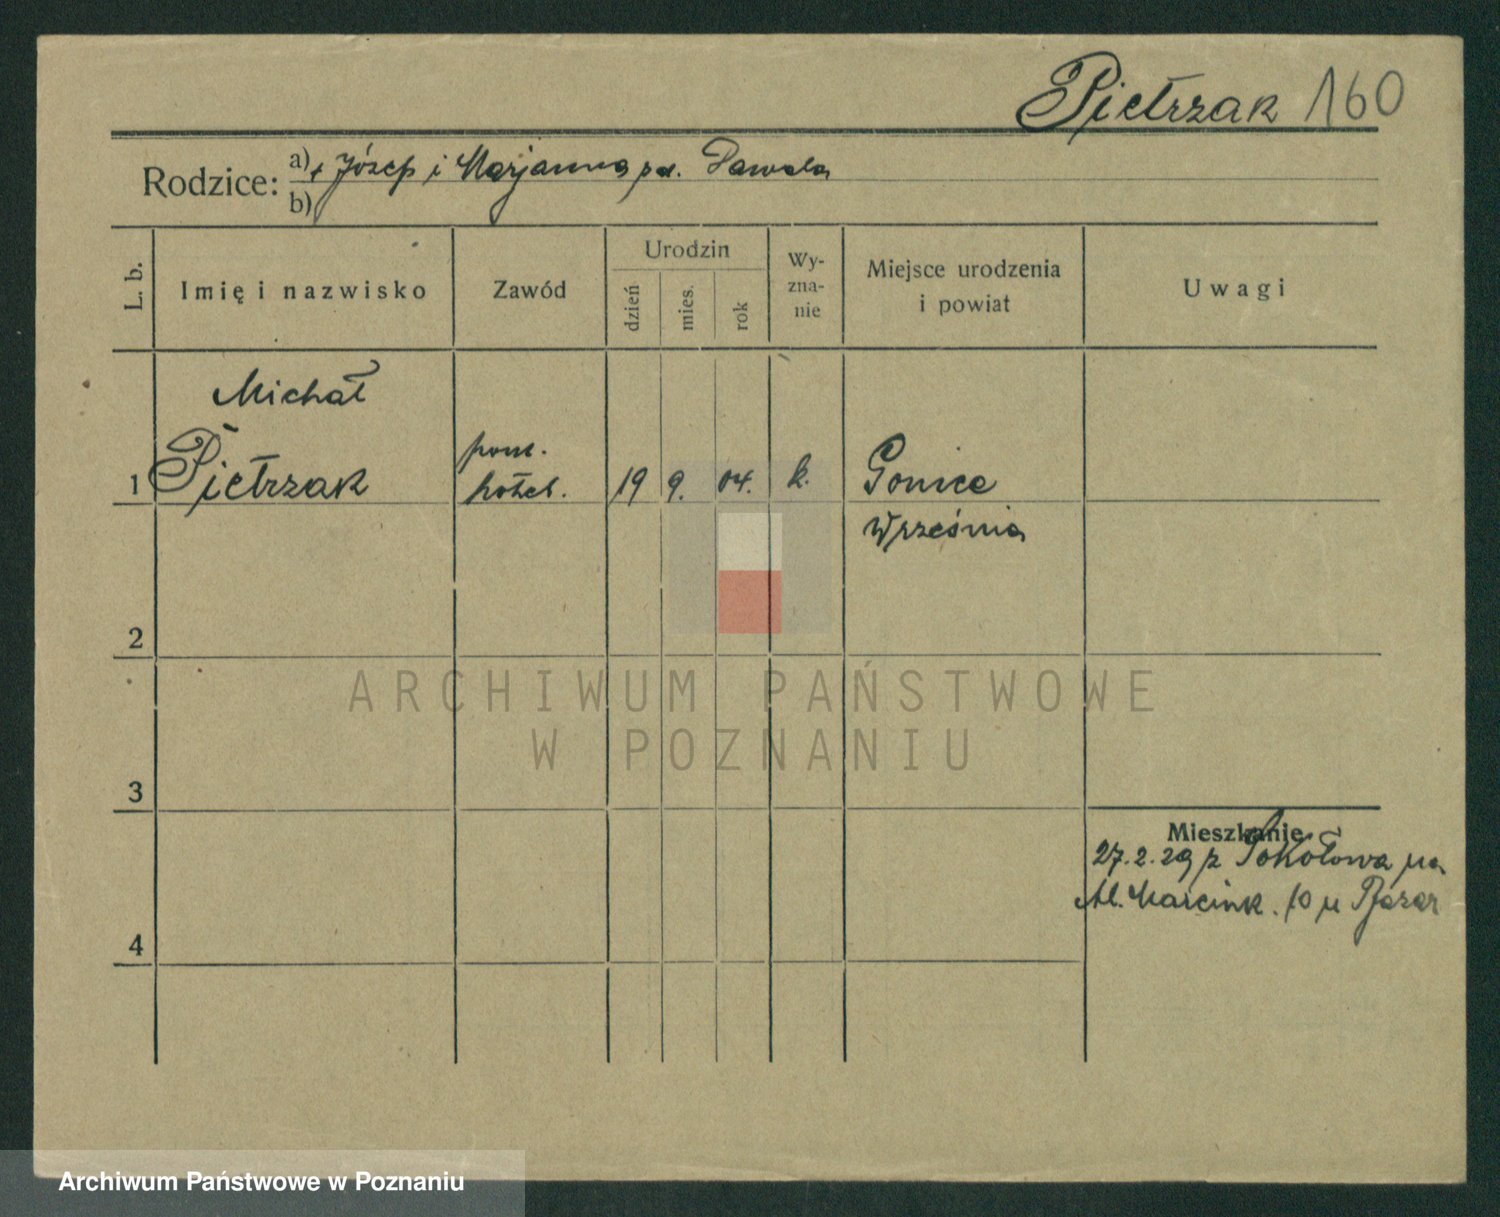 Pietrzak 160
Rodzice: a) + Józef i Marjanna zd. Pawela
b)
L. b.
Imię i nazwisko
Zawód
Urodzin
dzień
mies.
rok
Wy-
zna-
nie
Miejsce urodzenia
i powiat
Uwagi
Michał
1 Pietrzak
pom.
hotel.
19 9. 04. k. Gonice
Września
2
3
4
Mieszkanie
27.2.29 z Sokołowa na
Al. Marcink. 10 u
ARCHIWUM PAŃSTWOWE
W POZNANIU
Archiwum Państwowe w Poznaniu